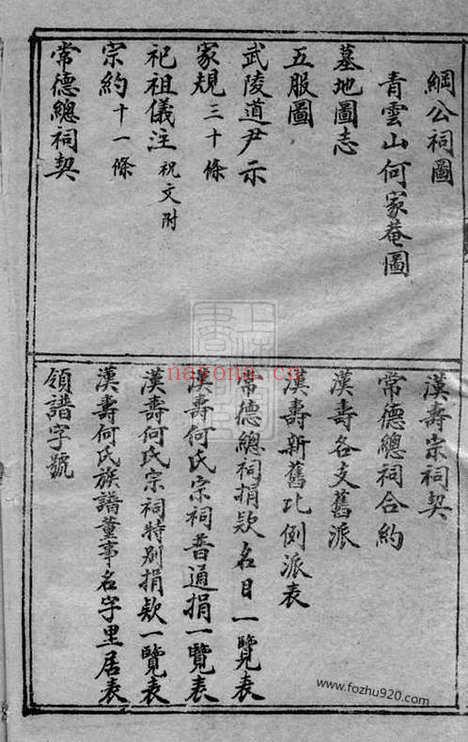 綱公祠圖
青雲山何家菴圖
墓地圖志
五服圖
武陵道尹示
家規三十條
祀祖儀注祝文附
宗約十一條
常德總祠契
漢壽宗祠契
常德總祠合約
漢壽各支舊派
漢壽新舊比例派表
常德總祠捐欵名目一覽表
漢壽何氏宗祠普通捐一覽表
漢壽何氏宗祠特別捐欵一覽表
漢壽何氏族譜董事名字里居表
領譜字號
www.fozhu920.com